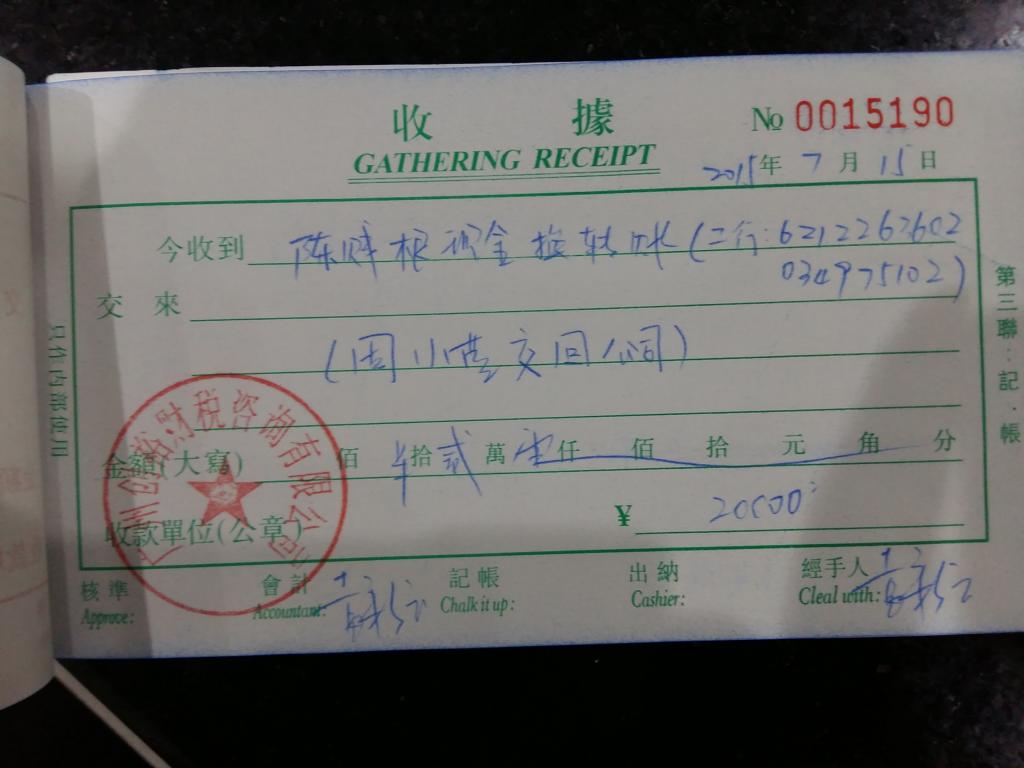 收 據
№ 0015190
GATHERING RECEIPT
2015年 7 月 15 日
今收到 陈 根现金换转账(工行:6212263602
034975102)
交 來
(周小 交回公司)
金額(大寫) 佰 拾贰萬零仟 佰 拾 元 角 分
收款單位(公章) ¥ 20000
核準 會計 記帳 出納 經手人
Approve: Accountant: Chalk it up: Cashier: Cleal with:
只作内部使用
第三聯:記.帳
州 财税咨询有限公司